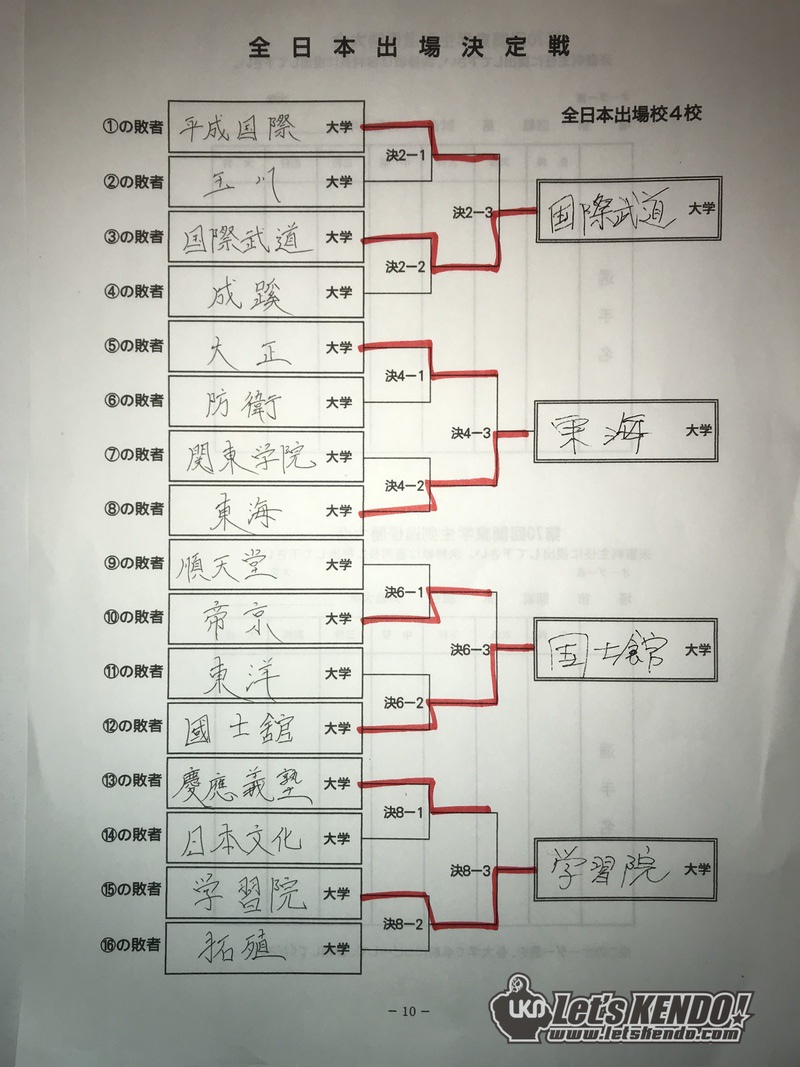 全日本出場決定戦
全日本出場校4校
①の敗者 平成国際 大学
②の敗者 玉川 大学
③の敗者 国際武道 大学
④の敗者 成蹊 大学
⑤の敗者 大正 大学
⑥の敗者 防衛 大学
⑦の敗者 関東学院 大学
⑧の敗者 東海 大学
⑨の敗者 順天堂 大学
⑩の敗者 帝京 大学
⑪の敗者 東洋 大学
⑫の敗者 國士舘 大学
⑬の敗者 慶應義塾 大学
⑭の敗者 日本文化 大学
⑮の敗者 学習院 大学
⑯の敗者 拓殖 大学
決2-1
決2-2
決2-3
国際武道 大学
決4-1
決4-2
決4-3
東海 大学
決6-1
決6-2
決6-3
国士舘 大学
決8-1
決8-2
決8-3
学習院 大学
- 10 -
LKD Let's KENDO!
www.letskendo.com